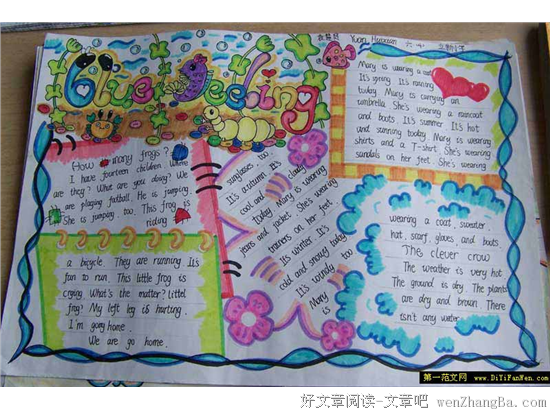 Yuan
Blue Feeling
How many frogs?
I have fourteen children. Where
are they? What are you doing? We
are playing football. He is jumping.
She is jumping too. This frog is
riding
a bicycle. They are running It's
fun to run. This little frog is
crying What's the matter? Littel
frog! My left leg is hurting.
I'm going home.
We are go home.
sunglasses too.
It's autumn It's
cool and cloudy
today Mary is wearing
jeans and jacket. She's wearing
trainers on her feet
It's winter. It's
cold and snowy today
It's windy too
Mary
is
Mary is wearing a coat
It's spring It's raining
today Mary is carrying an
umbrella She's wearing a raincoat
and boots It's summer It's hot
and sunning today Mary is wearing
shirts and a T-shirt. She's wearing
sandals on her feet. She's wearing
wearing a coat, sweater,
hat, scarf, gloves, and boots
The clever crow
The weather is very hot
The ground is dry The plants
are dry and brown There
isn't any water
第一范文网
www.DiYiFanWen.com
好文章阅读-文章吧 wenZhangBa.com